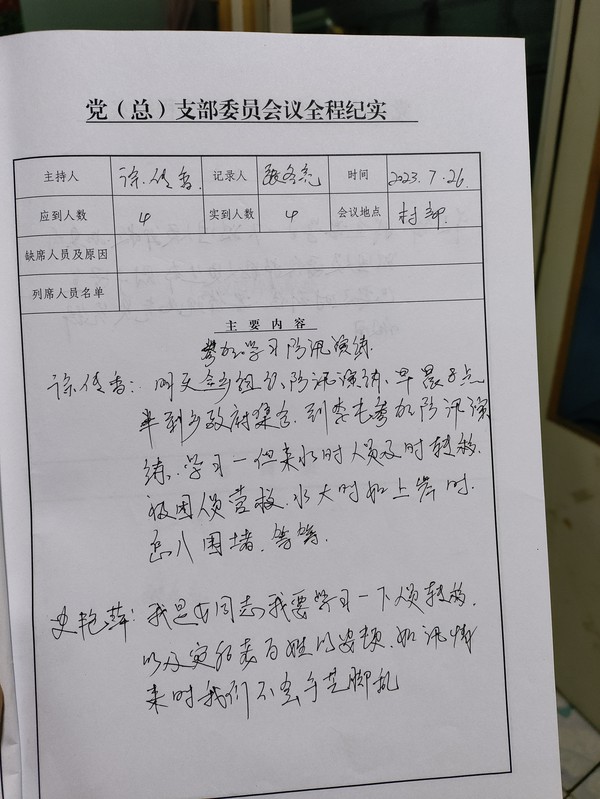 党（总）支部委员会议全程纪实
主持人 徐传香 记录人 时间 2023.7.26
应到人数 4 实到人数 4 会议地点 村部
缺席人员及原因
列席人员名单
主要内容
参加学习防汛演练
徐传香：明天全乡组织防汛演练，早晨8点
半到乡政府集合，到李屯参加防汛演
练，学习一但来水时人员及时转移，
被困人员营救，水大时如上岸时，
怎么围堵，等等，
史艳萍：我是女同志，我要学习一下人员转移，
以及灾后老百姓的安顿，如汛情
来时我们不会手忙脚乱